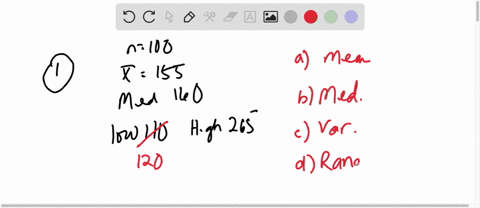 1
n=100
x̄ = 155
Med 160
low 110 High 265
120
a) Mean
b) Med.
c) Var.
d) Rang